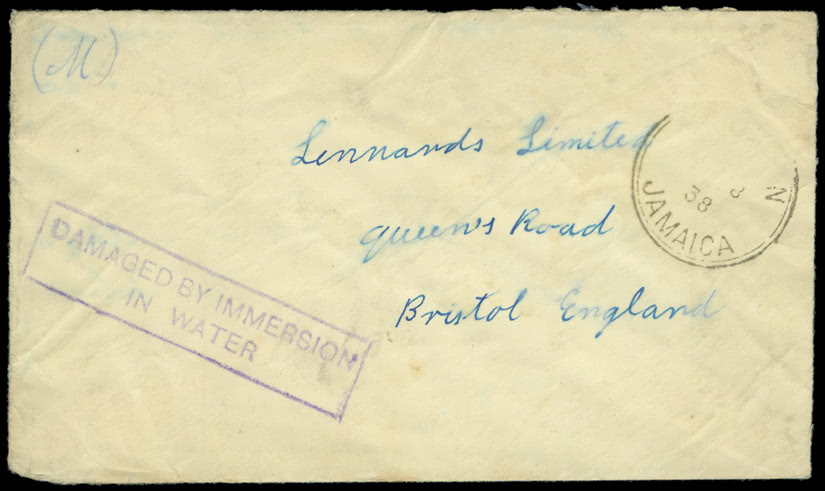 (M)
Lennards Limited
Queen's Road
Bristol England
38 8 N
JAMAICA
DAMAGED BY IMMERSION
IN WATER